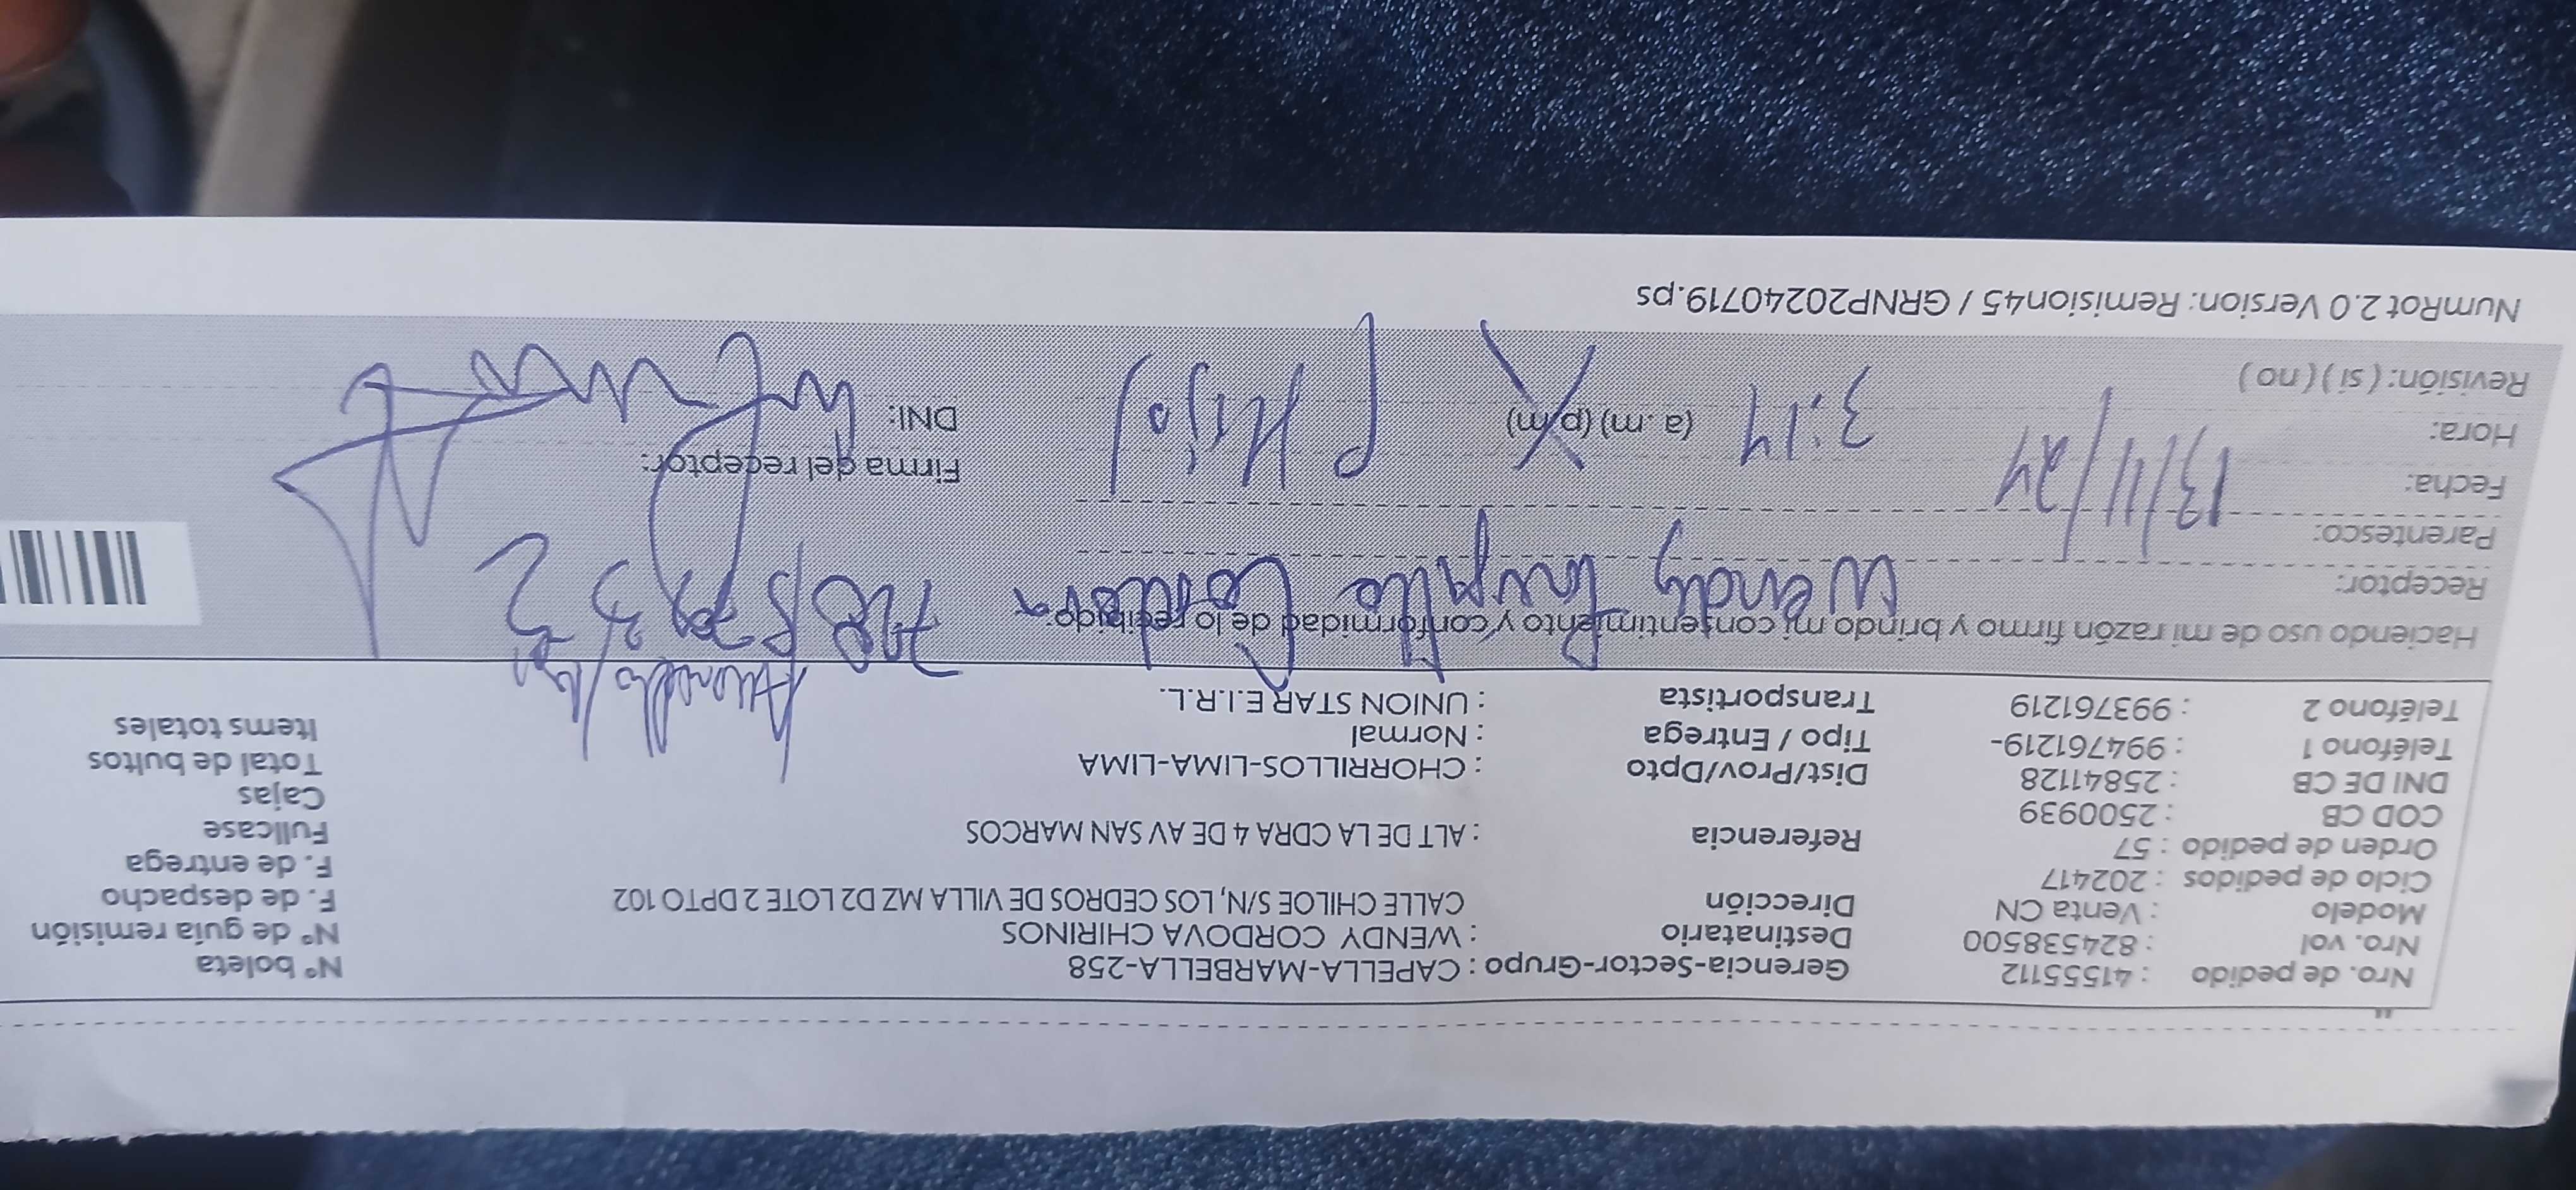 Nro. de pedido : 41555112 Gerencia-Sector-Grupo : CAPELLA-MARBELLA-258 N° boleta
Nro. vol : 824538500 Destinatario : WENDY CORDOVA CHIRINOS N° de guía remisión
Modelo : Venta CN Dirección CALLE CHILOE S/N, LOS CEDROS DE VILLA MZ D2 LOTE 2 DPTO 102 F. de despacho
Ciclo de pedidos : 202417 F. de entrega
Orden de pedido : 57 Referencia : ALT DE LA CDRA 4 DE AV SAN MARCOS Fullcase
COD CB : 2500939 Cajas
DNI DE CB : 25841128 Dist/Prov/Dpto : CHORRILLOS-LIMA-LIMA Total de bultos
Teléfono 1 : 994761219- Tipo / Entrega : Normal Items totales
Teléfono 2 : 993761219 Transportista : UNION STAR E.I.R.L.
Haciendo uso de mi razón firmo y brindo mi consentimiento y conformidad de lo recibido:
Receptor: Wendy
Parentesco:
Fecha: 13/11/24 Firma del receptor:
Hora: 3:14 (a.m) (p.m) (Hijo) DNI:
Revisión: ( si ) ( no )
NumRot 2.0 Version: Remision45 / GRNP20240719.ps